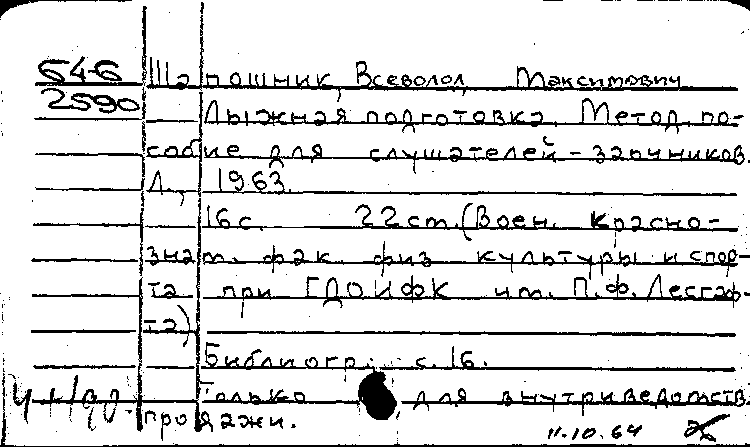 64-6 Шапошник, Всеволод Максимович
2590 Лыжная подготовка. Метод. по-
собие для слушателей-заочников.
Л., 1963.
16 с. 22 см. (Воен. красно-
знам. фак. физ культуры и спор-
та при ГДОИФК им. П.Ф. Лесгаф-
та)
Библиогр.: с. 16.
Только для внутриведомств.
продажи.
11.10.64